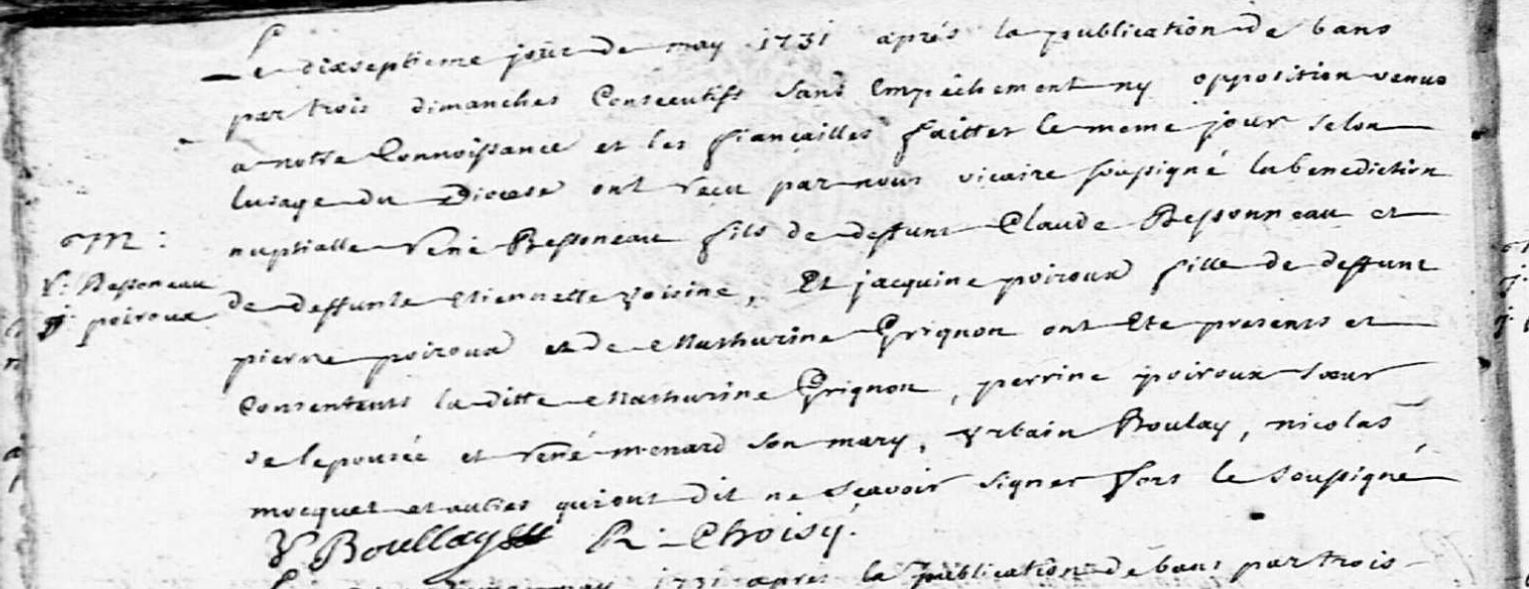 Le dixseptieme jour de may 1731 aprés la publication de bans
par trois dimanches Consecutifs sans Empéchement ny opposition venus
a notre Connoissance et les fiancailles faittes le meme jour selon
lusage du Diocese ont reçu par nous vicaire soussigné la benediction
nuptialle René Bessoneau fils de deffunt Claude Bessonneau et
de deffunte Etiennette voisine, Et jacquine poiroux fille de deffunt
pierre poiroux et de Mathurine Grignon ont Eté presents et
Consentents la ditte Mathurine Grignon, perrine poiroux sœur
de lepousée et rené menard son mary, Urbain Boulay, nicolas
mocquet et autres qui ont dit ne sçavoir signer fors le soussigné
V Boullay R. Choisy.
M:
r: Bessoneau
j: poiroux
may 1731 aprés la publication de bans par trois